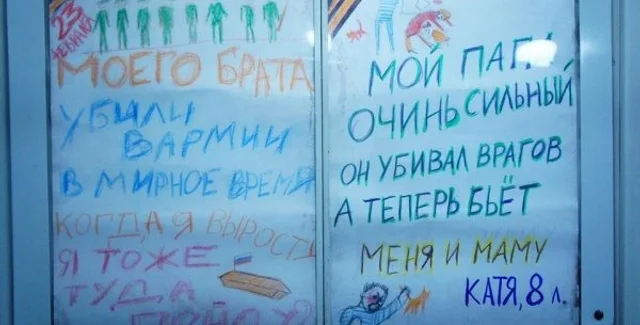 23 ФЕВРАЛЯ
МОЕГО БРАТА
УБИЛИ
В АРМИИ
В МИРНОЕ ВРЕМЯ
КОГДА Я ВЫРОСТУ
Я ТОЖЕ
ТУДА
ПОЙДУ?
МОЙ ПАПА
ОЧИНЬ СИЛЬНЫЙ
ОН УБИВАЛ ВРАГОВ
А ТЕПЕРЬ БЬЁТ
МЕНЯ И МАМУ
КАТЯ, 8 л.